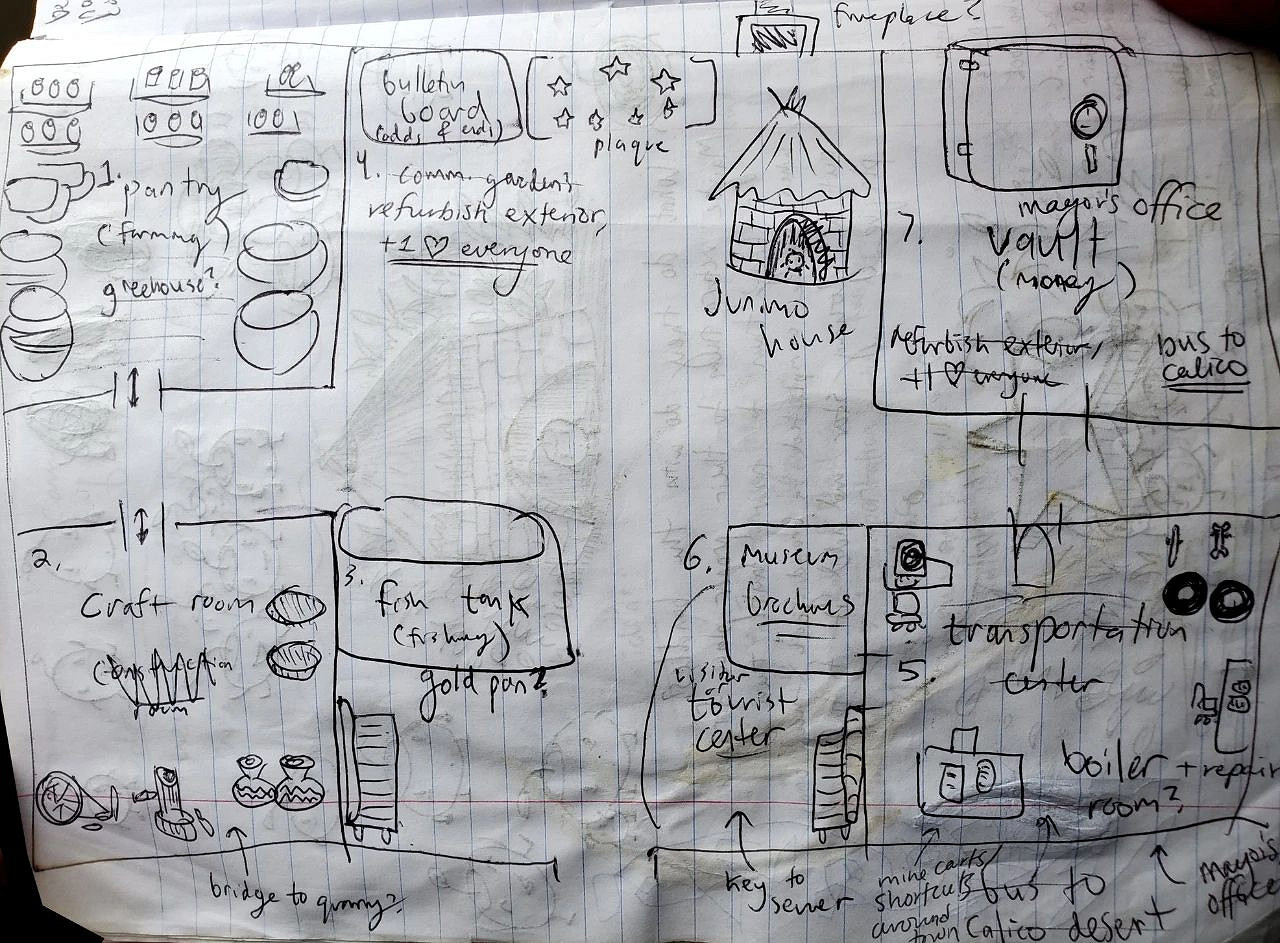 fireplace?
bulletin
board
(odds & ends)
plaque
1. pantry
(farming)
greehouse?
4. comm. gardens
refurbish exterior,
+1 ♡ everyone
Junimo
house
mayor's office
7. vault
(money)
refurbish exterior,
+1 ♡ everyone
bus to
calico
2.
Craft room
3. fish tank
(fishing)
gold pan?
6. Museum
brochures
visitor
or
tourist
center
5. transportation
center
boiler + repair
room?
bridge to quarry?
key to
sewer
mine carts
shortcuts
around
town
bus to
Calico desert
mayor's
office